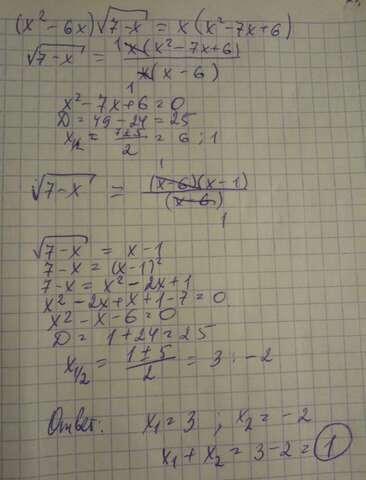 (x²-6x)√7-x = x(x²-7x+6)
√7-x = x(x²-7x+6) / x(x-6)
1
1
x²-7x+6=0
D=49-24=25
x₁/₂ = 7±5 / 2 = 6 ; 1
1
√7-x = (x-6)(x-1) / (x-6)
1
√7-x = x-1
7-x = (x-1)²
7-x = x²-2x+1
x²-2x+x+1-7=0
x²-x-6=0
D= 1+24=25
x₁/₂ = 1±5 / 2 = 3 ; -2
Ответ: x₁=3 ; x₂=-2
x₁+x₂=3-2=1